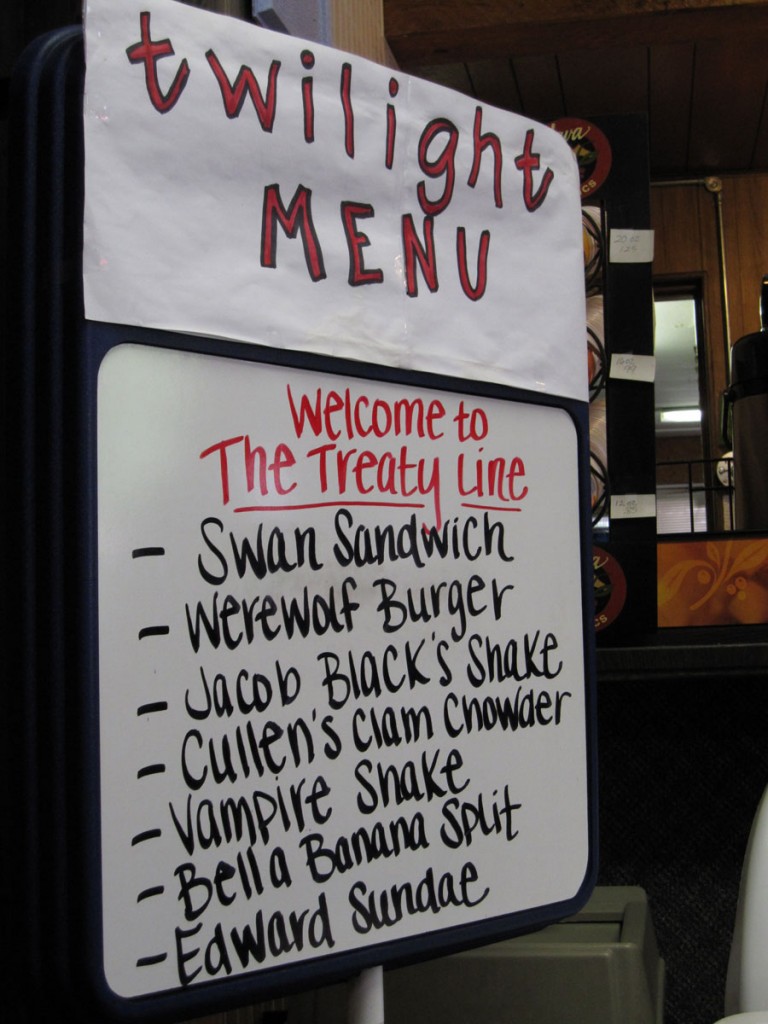 twilight
MENU
Welcome to
The Treaty Line
- Swan Sandwich
- Werewolf Burger
- Jacob Black's Shake
- Cullen's Clam Chowder
- Vampire Shake
- Bella Banana Split
- Edward Sundae